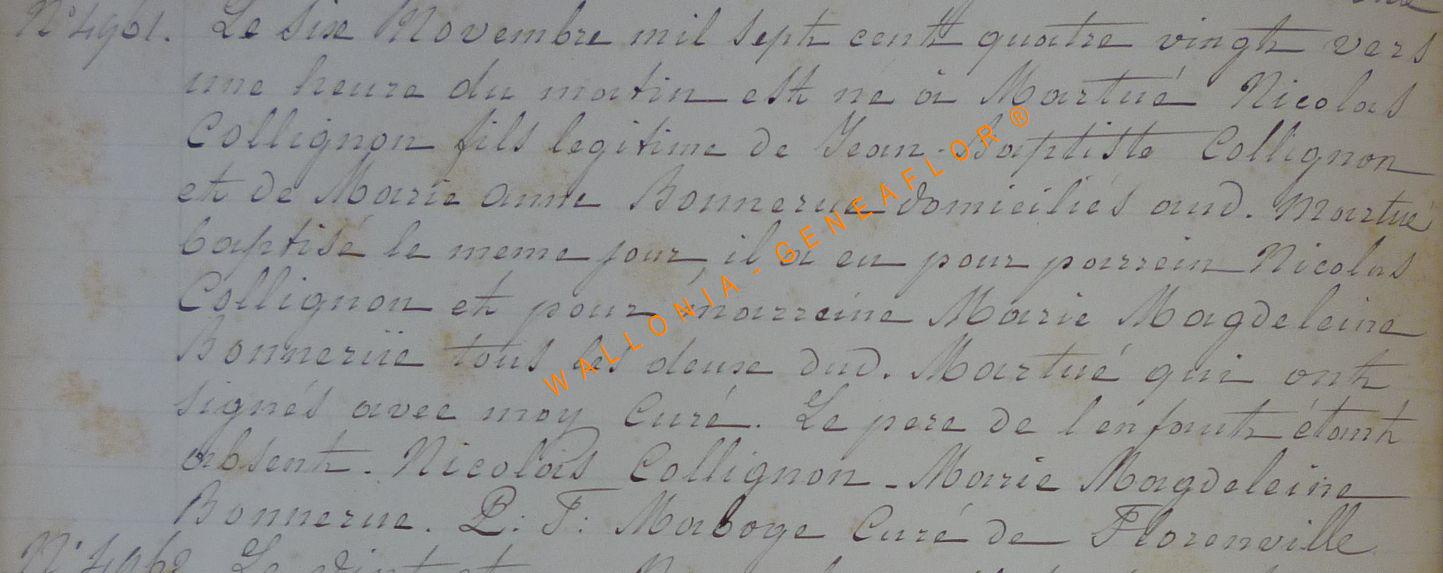 N° 4961. Le six Novembre mil sept cent quatre vingt vers
une heure du matin est né à Martué Nicolas
Collignon fils legitime de Jean-Baptiste Collignon
et de Marie anne Bonnerue domiciliés aud. Martué
baptisé le meme jour, il a eu pour parrein Nicolas
Collignon et pour marreine Marie Magdeleine
Bonneriie tous les deux dud. Martué qui ont
signés avec moy Curé. Le pere de l enfant étant
absent. Nicolas Collignon - Marie Magdeleine
Bonnerue. P: F: Maboge Curé de Florenville
N° 4962 Le vingt et
WALLONIA - GENEAFLOR ®